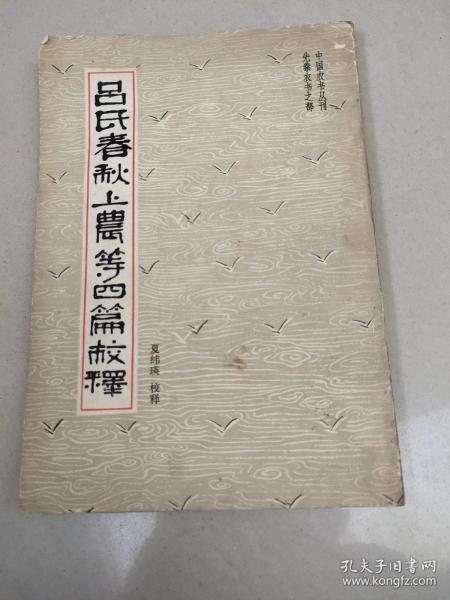 中国农书丛刊
先秦农书之部
吕氏春秋上農等四篇校釋
夏纬瑛 校释
孔夫子旧书网
www.kongfz.com